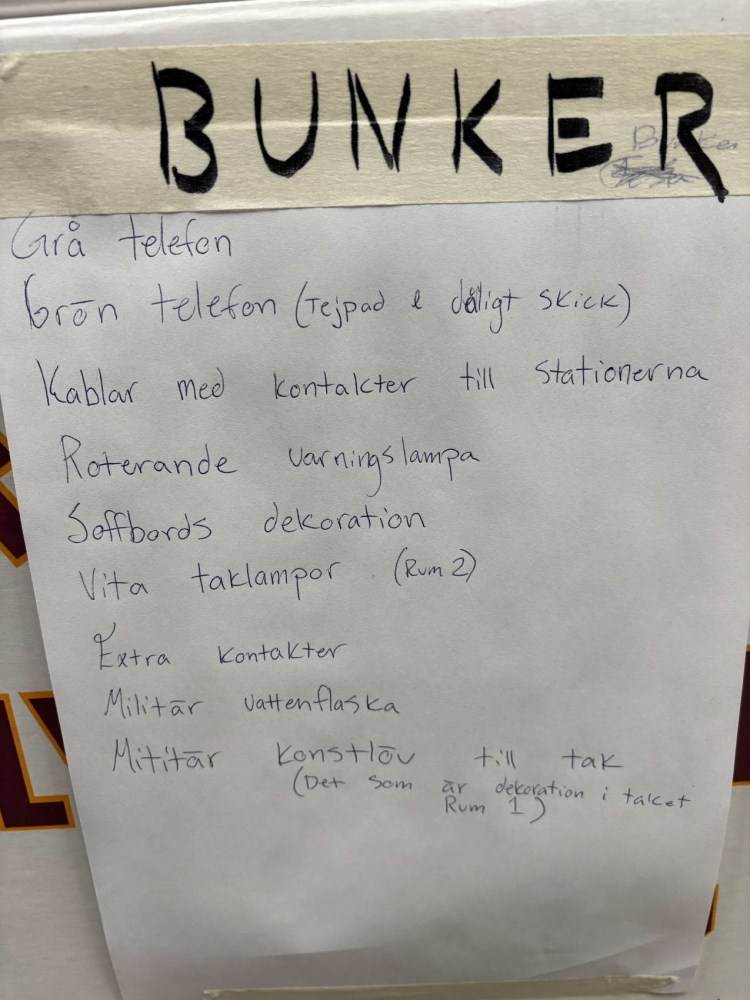 BUNKER
Bunker
Grå telefon
Grön telefon (Tejpad & dåligt skick)
Kablar med kontakter till stationerna
Roterande varningslampa
Soffbords dekoration
Vita taklampor (Rum 2)
Extra kontakter
Militär vattenflaska
Mititär konstlöv till tak
(Det som är dekoration i taket
Rum 1)